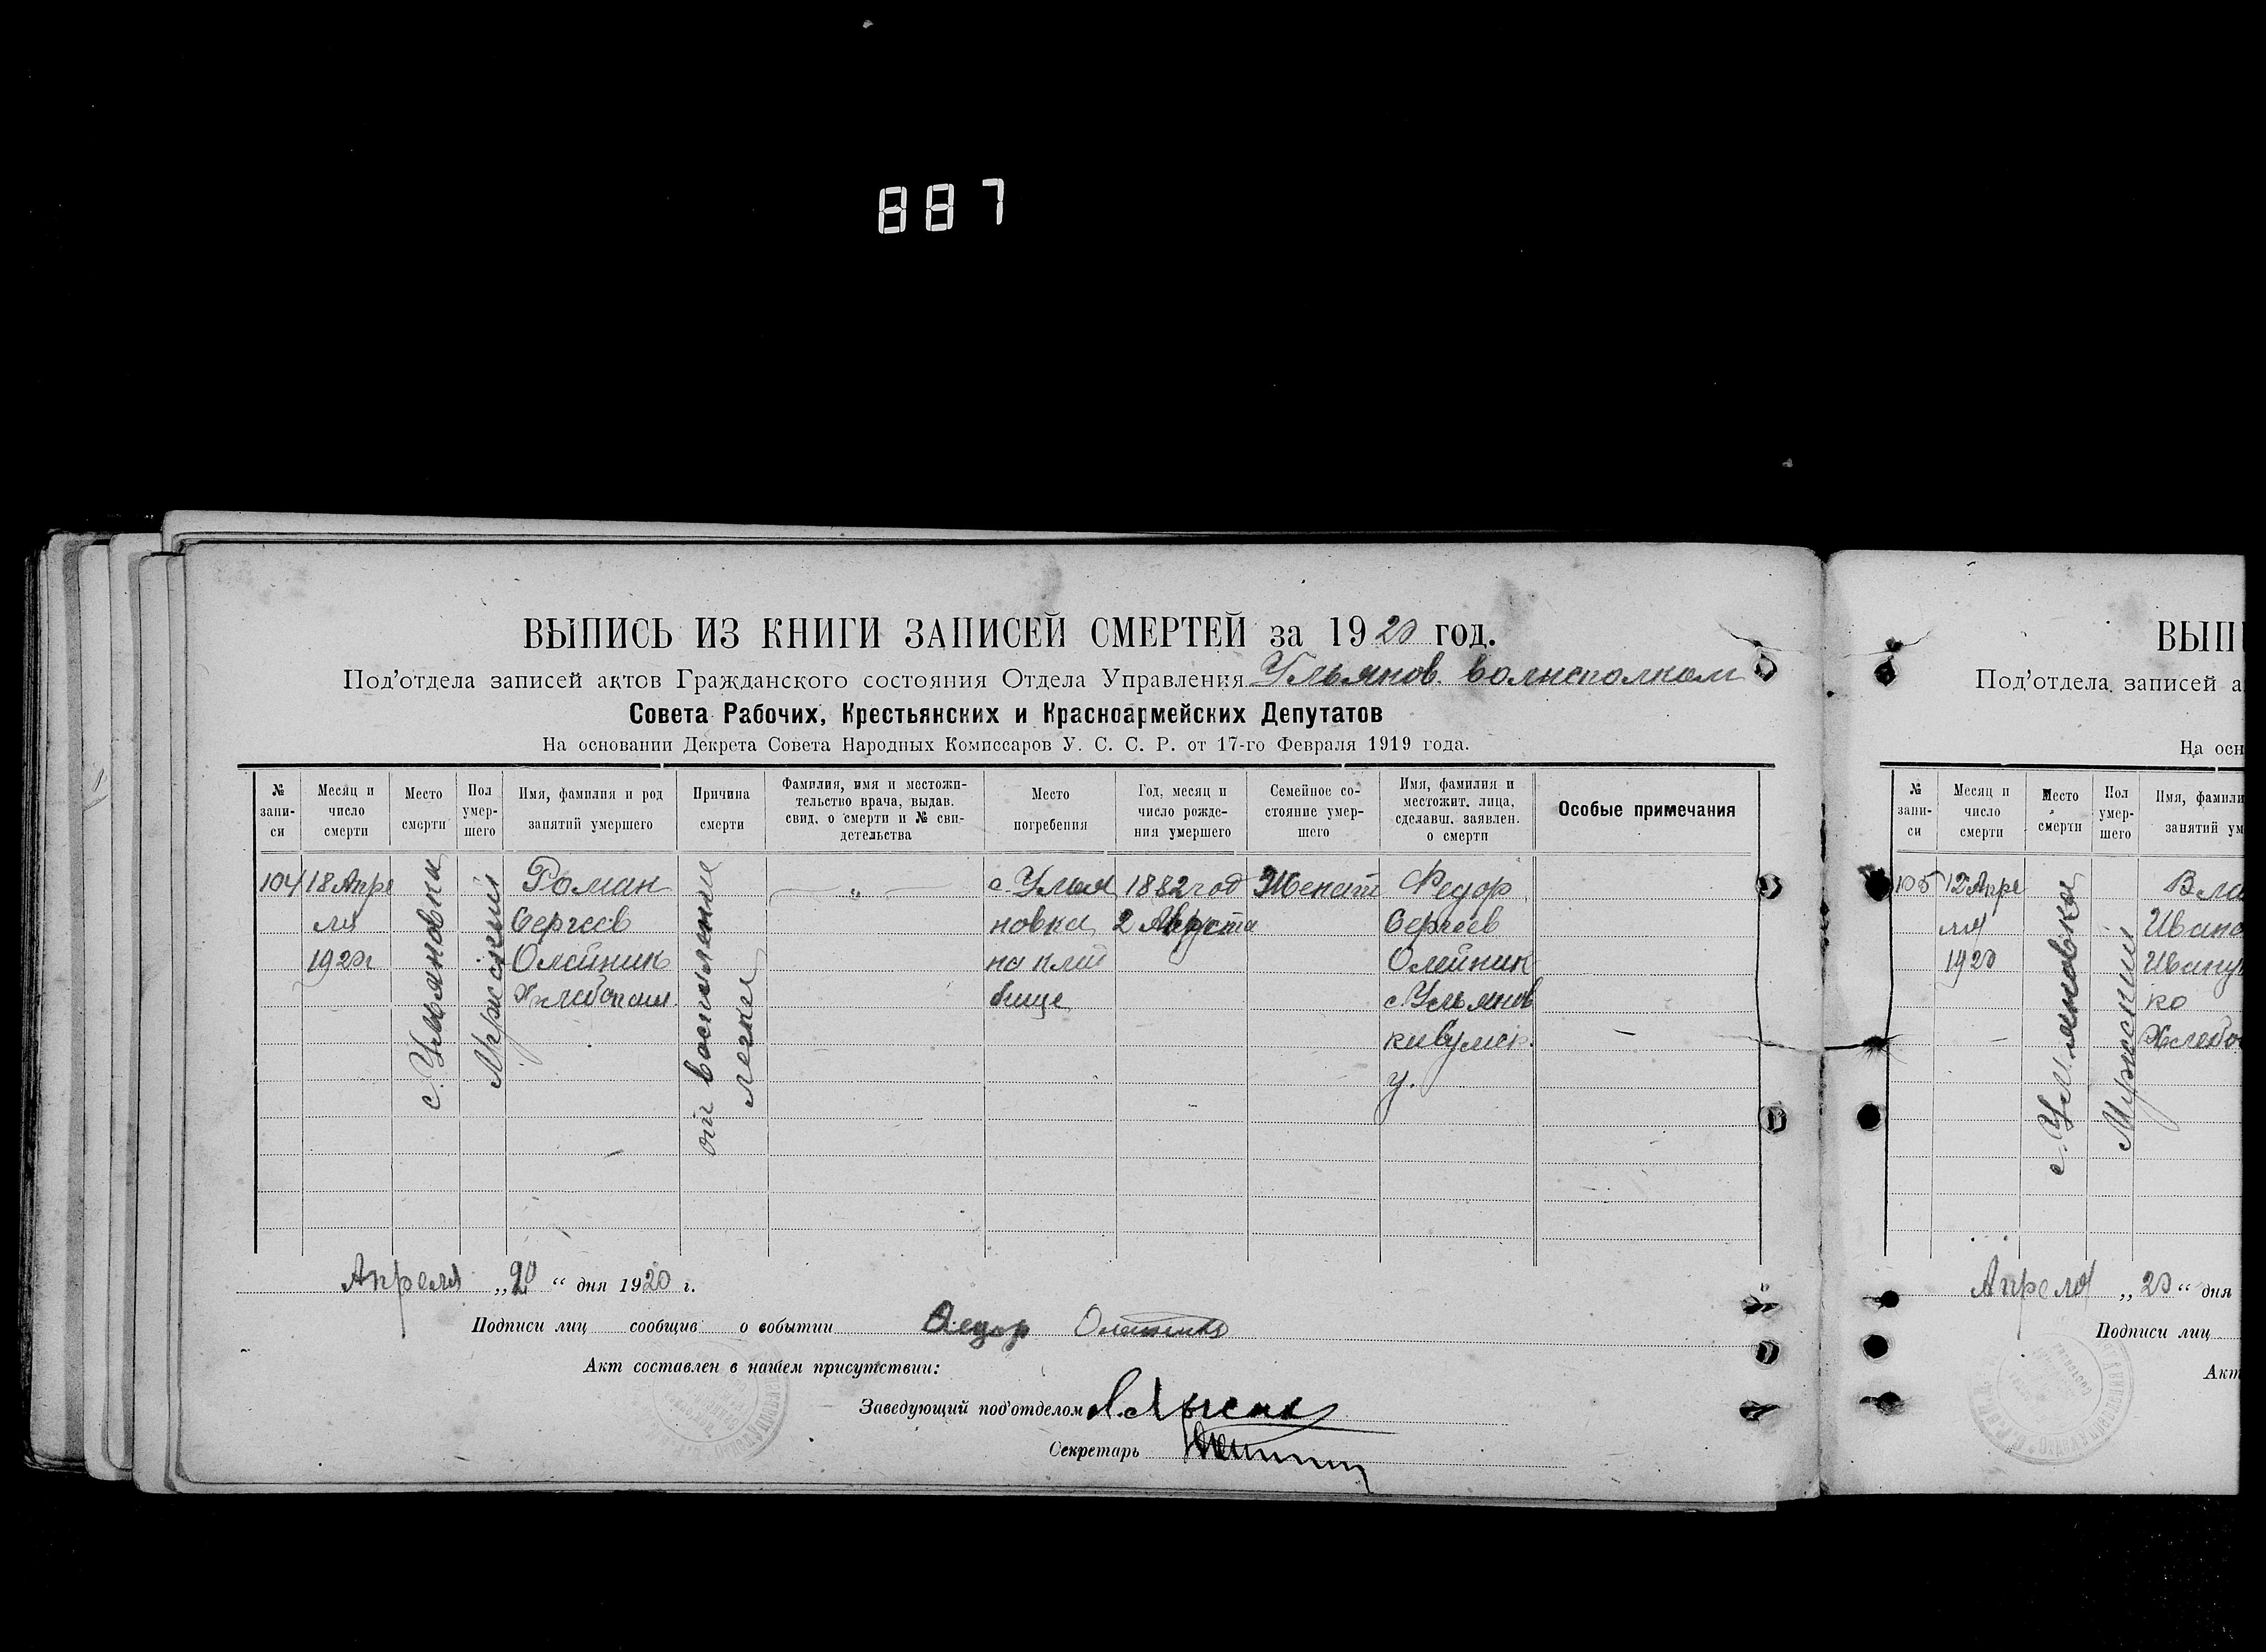 887
ВЫПИСЬ ИЗ КНИГИ ЗАПИСЕЙ СМЕРТЕЙ за 1920 год.
Под'отдела записей актов Гражданского состояния Отдела Управления Ульянов. волисполком
Совета Рабочих, Крестьянских и Красноармейских Депутатов
На основании Декрета Совета Народных Комиссаров У. С. С. Р. от 17-го Февраля 1919 года.
№ запи-
си
Месяц и
число
смерти
Место
смерти
Пол
умер-
шего
Имя, фамилия и род
занятий умершего
Причина
смерти
Фамилия, имя и местожи-
тельство врача, выдав.
свид. о смерти и № сви-
детельства
Место
погребения
Год, месяц и
число рожде-
ния умершего
Семейное со-
стояние умер-
шего
Имя, фамилия и
местожит. лица,
сделавш. заявлен.
о смерти
Особые примечания
104
18 Апре
ля
1920г
с. Ульяновка
Мужский
Роман
Сергеев
Олейник
Хлебопаш.
от воспаление
легких
— „ —
с. Улья
новка
на клад
бище
1882 год
2 Августа
Женат
Федор
Сергеев
Олейник
с. Ульянов
ки Сумск.
у.
Апреля „20“ дня 1920 г.
Подписи лиц сообщив о событии Федор Олейник
Акт составлен в нашем присутствии:
Заведующий под'отделом
Секретарь
ВЫПИ
Под'отдела записей а
На осн
№
запи-
си
Месяц и
число
смерти
Место
смерти
Пол
умер-
шего
Имя, фамили
занятий ум
105
12 Апре
ля
1920
с. Ульяновка
Мужский
Вла
Ивано
Иващ
ко
Хлебо
Апреля „20“ дня
Подписи лиц
Акт